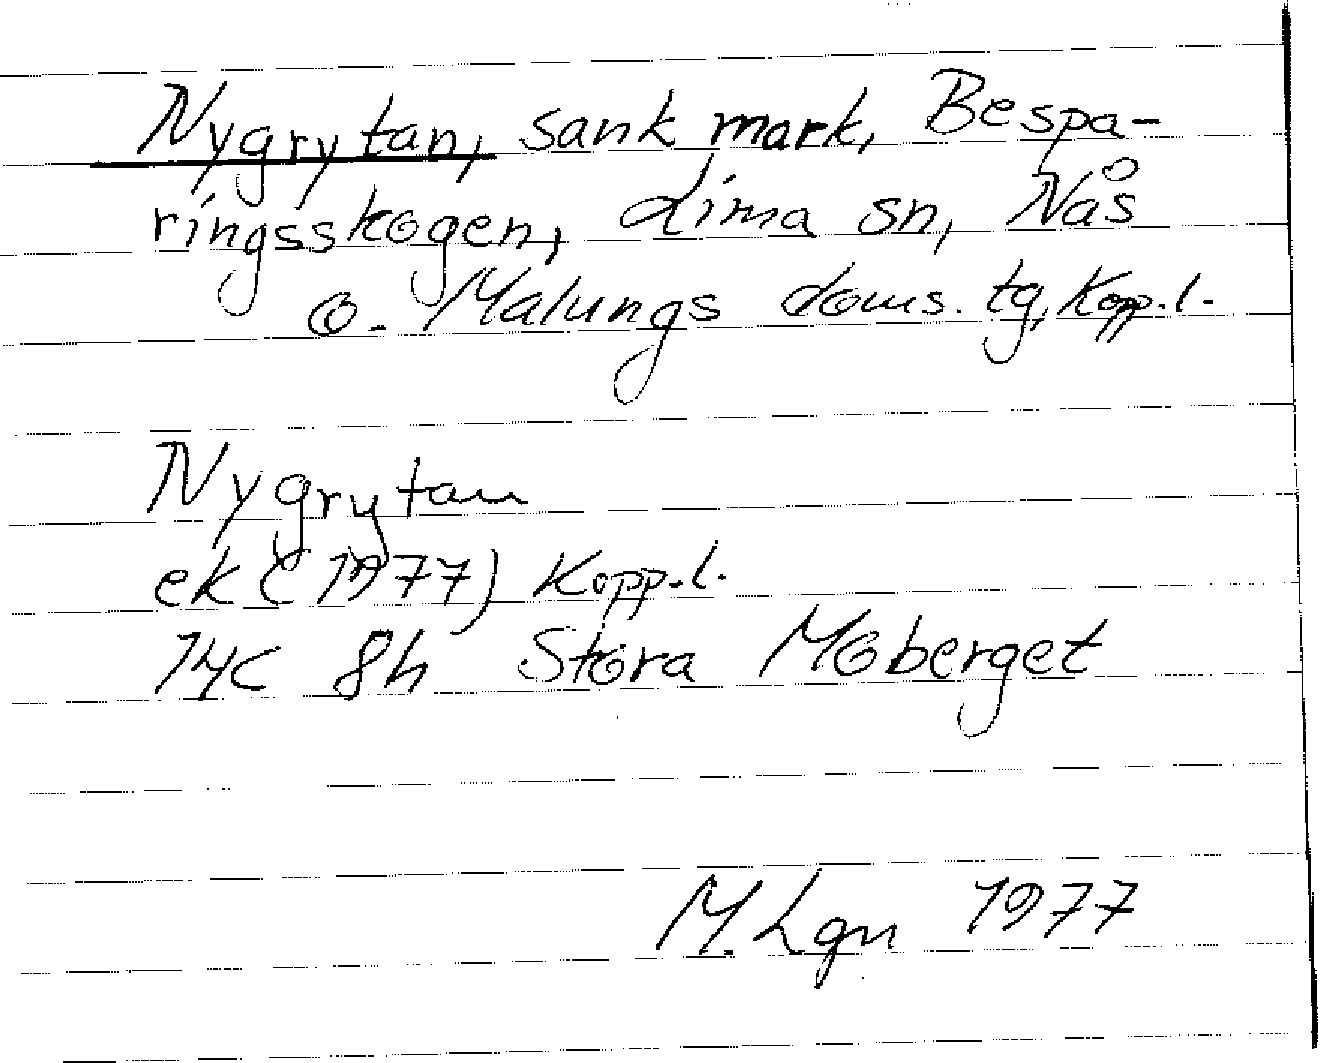 Nygrytan, sank mark, Bespa-
ringsskogen, Lima sn, Nås
o. Malungs doms. tg, Kopp.l.
Nygrytan
ek (1977) Kopp.l.
14C 8h Stora Moberget
M. Lgn 1977